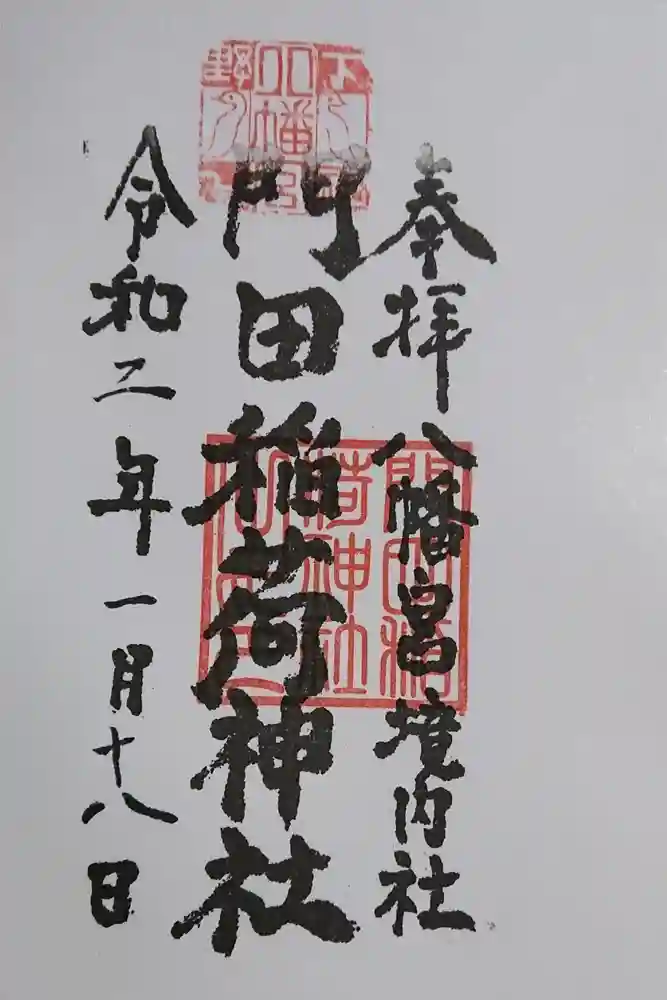 奉拝
八幡宮境内社
門田稲荷神社
令和二年一月十八日
下野
八幡宮
門田稲
荷神社